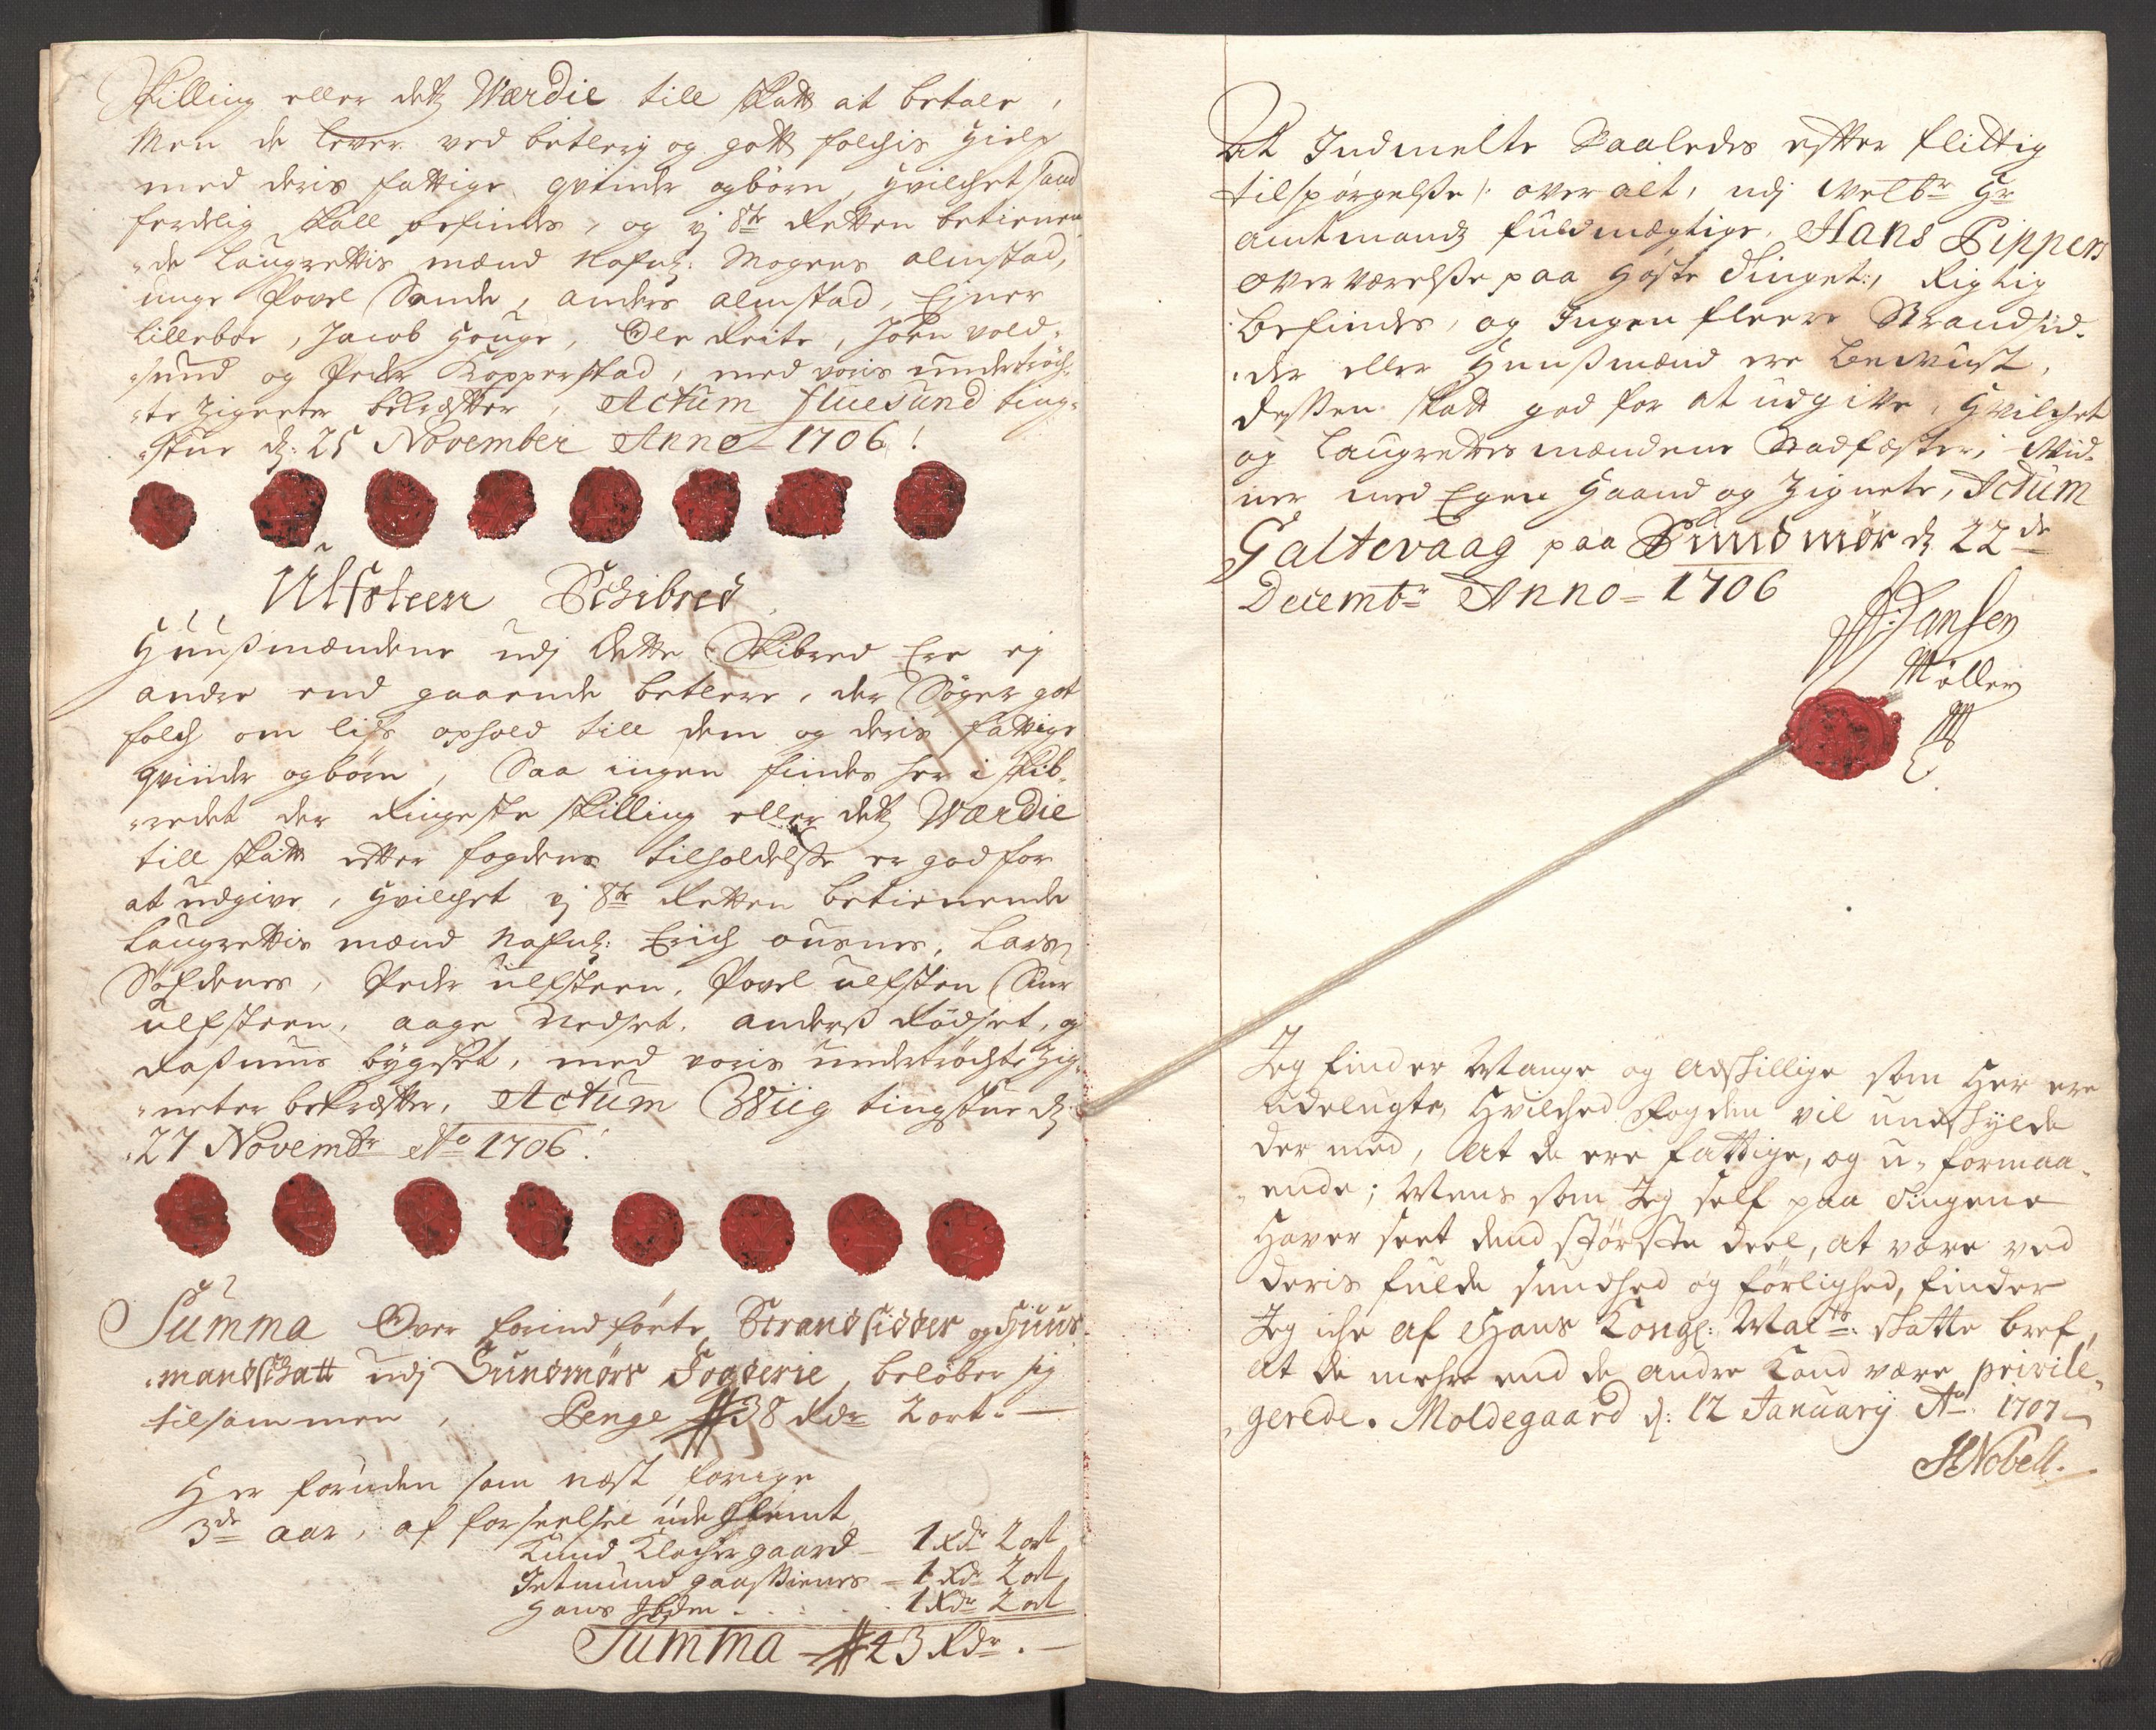 Skilling eller detz Wærdie till skatt at betale,
Men de lever ved betlery og gott folchis hielp
med deris fattige qvinder og børn, hvilchet sand
ferdelig skall befindes, og vj 8te Retten betienen
de Laugrettis mænd Nafnl: Mogens almestad,
unge Povel Sande, anders almestad, Ejner
Lillebøe, Jacob Houge, Ole Reite, John vold-
sund og Peder Kopperstad, med voris undertröch-
te Zigneter bekræffter, Actum fluesund ting-
stue dz: 25 November Anno 1706!
Ulfsteen Schibred
Huusmændene udj dette Skibred Ere ej
andre end gaaende betlere, der Søger got
folch om lifs ophold till dem og deris fattige
qvinder og børn, Saa ingen findes her i skib-
redet der ringeste skilling eller detz Wærdie
till skatt efter fogdens tilholdelsse er god for
at udgive, hvilchet vj 8te Retten betienende
Laugrettis mænd Nafnl: Erich ousnes, Lars
Søfdenes, Peder ulfsteen, Povel ulfsten Siur
ulfsteen, aage Nedset, anderss Rødset, og
Rassmus bygset, med voris undertröchte Zig-
neter bekræffter, Actum Wiig tingstue dz
27 Novembr Ao 1706!
Summa Over forind förte Strandsidder og Huus
mandschatt udj Sundmørs Fogderie, beløber sig
tilsammen, Penge 38 Rdr 2 ort. —
Her foruden som næst forige
3de aar, af forseelse ude glemt,
Knud Klochergaard – 1 Rdr 2 ort
Jetmund gaassienes – 1 Rdr 2 ort
Hans Ibdm . . . . . 1 Rdr 2 ort
Summa – 43 Rdr. —
At Indmelte Saaledes effter flittig
tilspørgelsse /: over alt, udj Velbr Hr
amtmandz fuldmægtige, Hans Pippers
overværelsse paa Høste Tinget :/ Rigtig
befindes, og Ingen fleere Strandsid-
der eller Huussmænd ere beviist,
dessen skatt god for at udgive, Hvilchet
og Laugrettes mændene Stadfæster, Vid-
ner med Egen Haand og Zignete, Actum
Galtevaag paa Sundmör dz 22de
Decembr Anno – 1706
Jansen
Møller
Jeg finder Mange og adskillige som Her ere
udelugte, Hvilched Fogden vil undskylde
der med, At de ere fattige, og u-formaa-
ende; Mens som Jeg self paa Tingene
Haver seet dend største deel, at være ved
deris fulde sundhed og førlighed, finder
Jeg iche af Hans Kongl: Maits: skatte bref,
at de mehre end de andre kand være privile-
gerede. Moldegaard d: 12 January Ao 1707
HNobell.